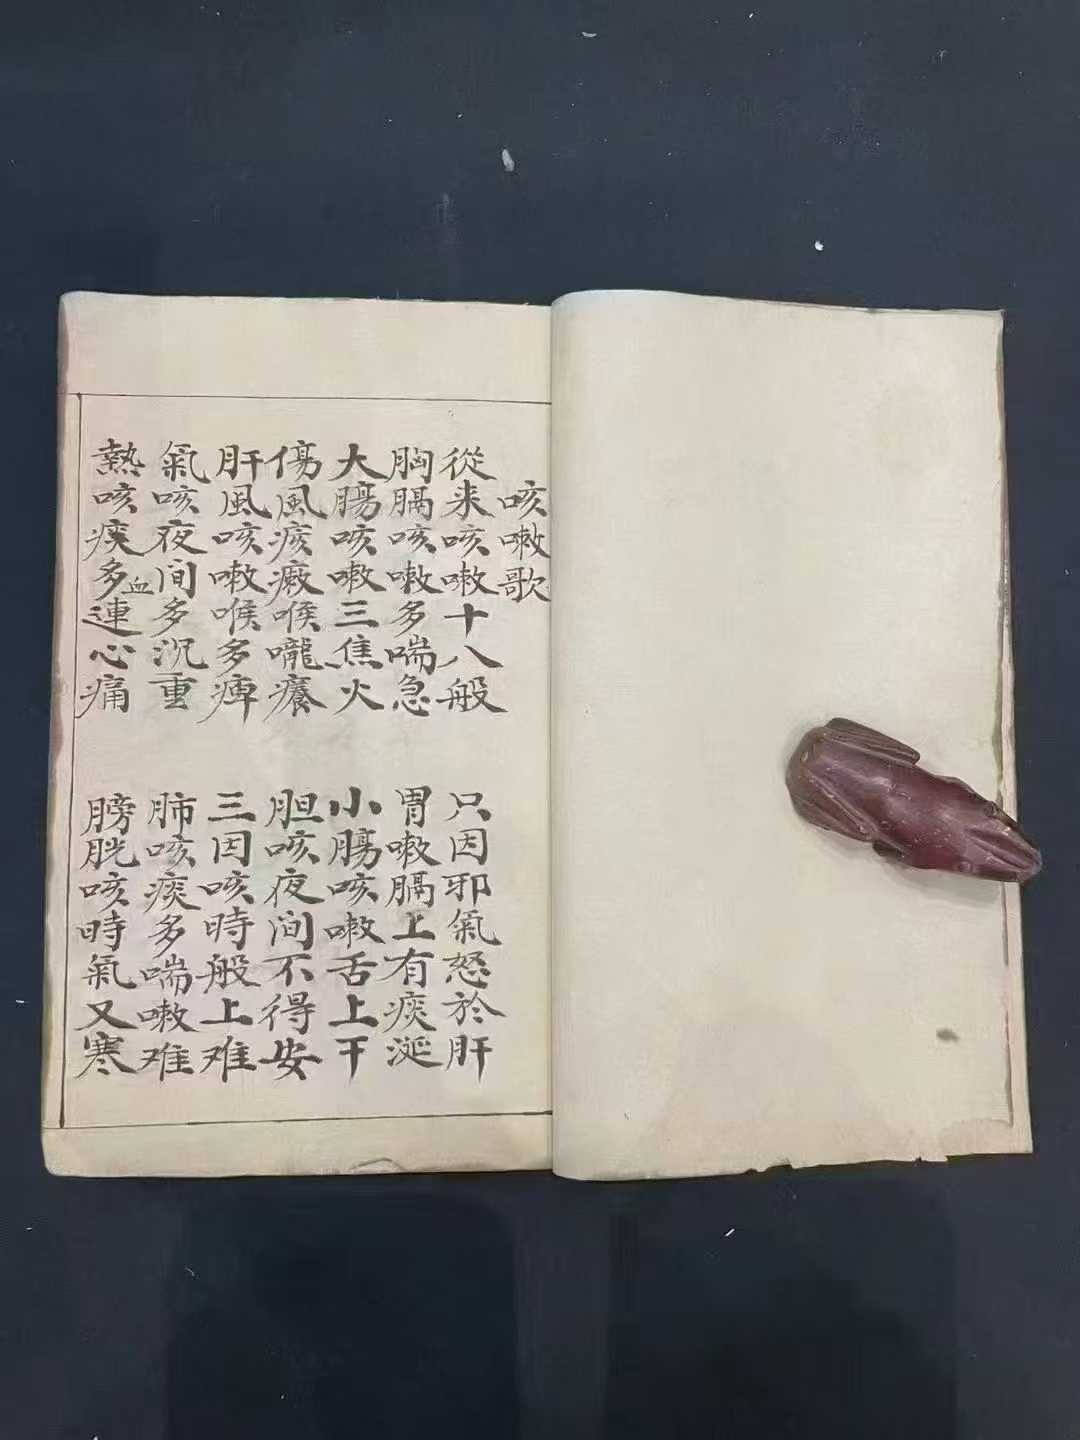 咳嗽歌
從来咳嗽十八般　只因邪氣怒於肝
胸膈咳嗽多喘急　胃嗽膈上有痰涎
大膓咳嗽三焦火　小膓咳嗽舌上干
傷風痎癥喉嚨癢　胆咳夜间不得安
肝風咳嗽喉多痺　三因咳時般上难
氣咳夜间多沉重　肺咳痰多喘嗽难
熱咳痰多血連心痛　膀胱咳時氣又寒